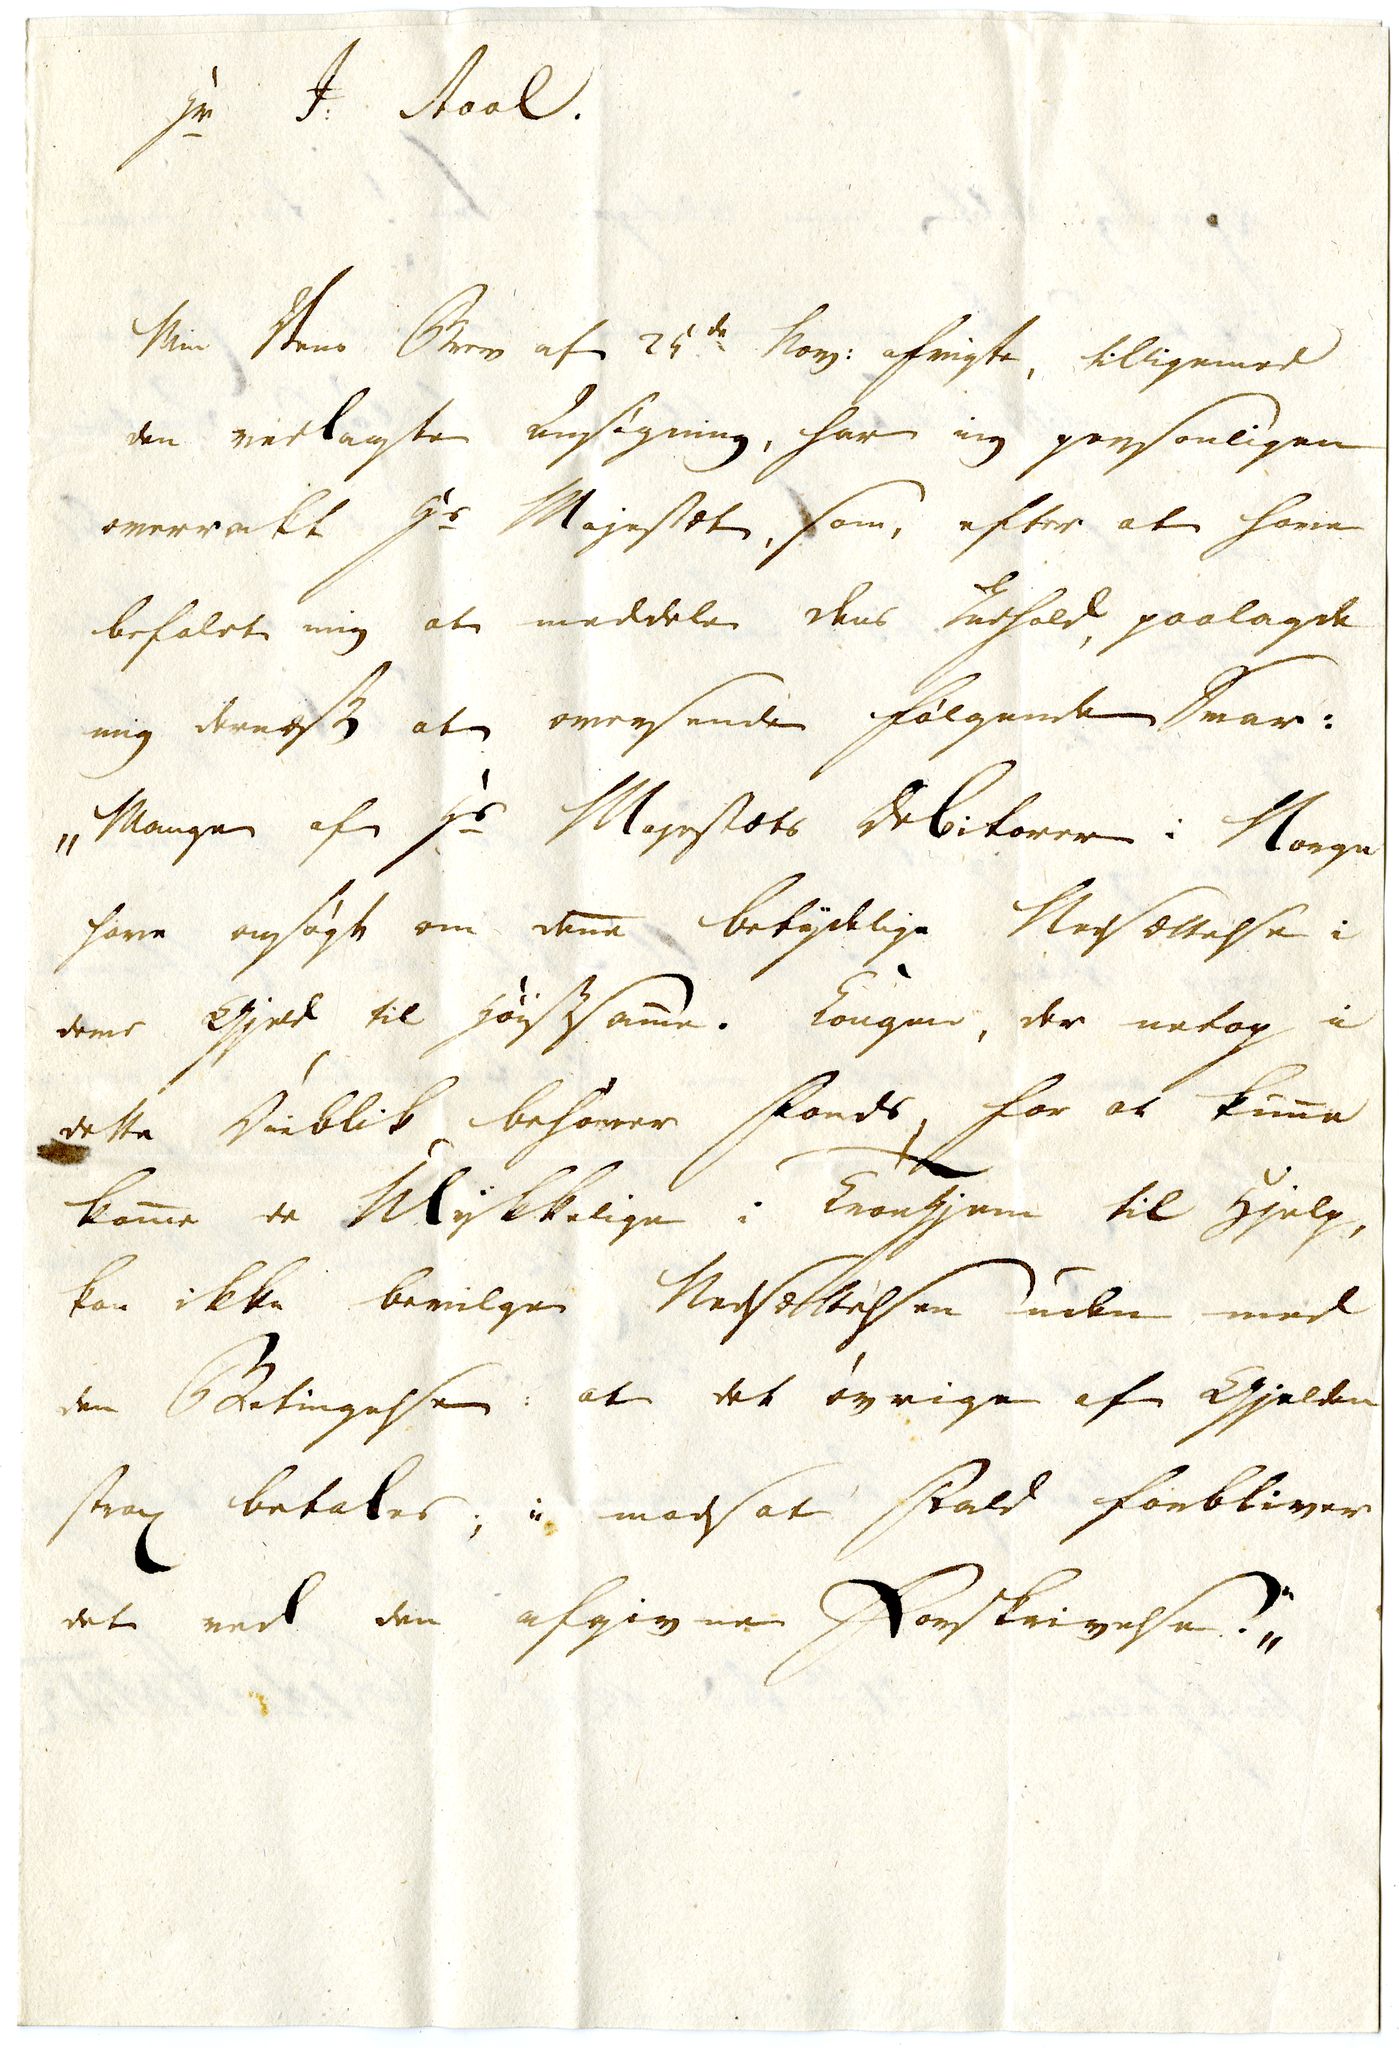 Hr J: Aall.
Min Vens Brev af 25de Nov: afvigte, tilligemed
den vedlagte Ansøgning, har jeg personligen
overrakt Hs Majestæt, som, efter at have
befalet mig at meddele dens Indhold, paalagde
mig dernæst at oversende følgende Svar:
„Mange af Hs Majestæts Debitorer i Norge
have ansøgt om denne betydelige Nedsættelse i
deres Gjeld til Høistsamme. Kongen, der netop i
dette Øieblik behøver Fonds, for at kunne
komme de Ulykkelige i Trontjem til Hjelp,
kan ikke bevilge Nedsættelsen uden med
den Betingelse: at det øvrige af Gjelden
strax betales; i modsat Fald forbliver
det ved den afgivne Forskrivelse.„